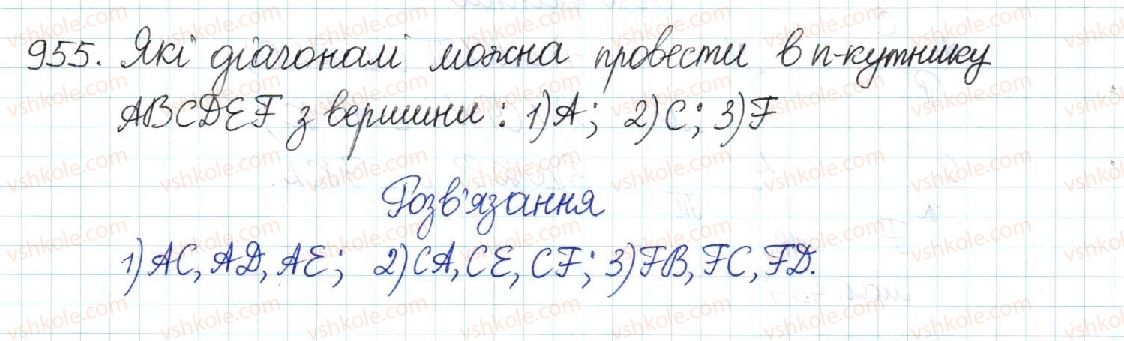 955. Які діагоналі можна провести в п-кутнику
ABCDEF з вершини: 1) A; 2) C; 3) F
Розв'язання
1) AC, AD, AE; 2) CA, CE, CF; 3) FB, FC, FD.